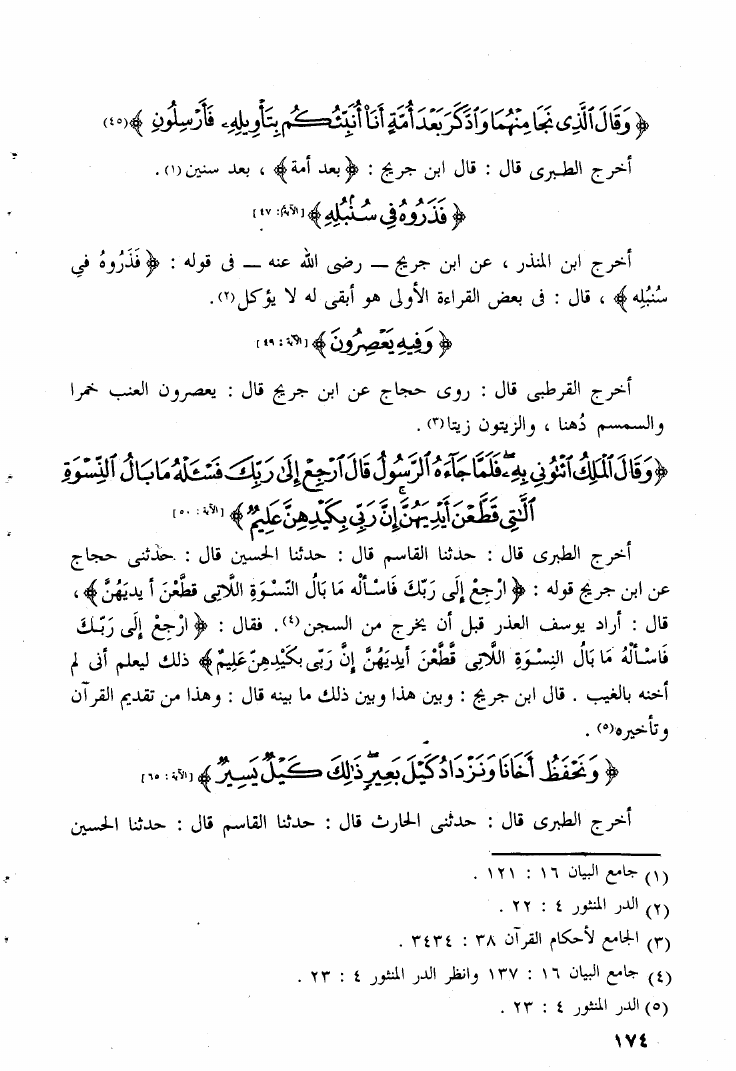 ﴿ وَقَالَ ٱلَّذِى نَجَا مِنْهُمَا وَٱدَّكَرَ بَعْدَ أُمَّةٍ أَنَا۠ أُنَبِّئُكُم بِتَأْوِيلِهِۦ فَأَرْسِلُونِ ﴾(٤٥)
أخرج الطبرى قال : قال ابن جريج : ﴿بعد أمة﴾ ، بعد سنين(١) .
﴿ فَذَرُوهُ فِى سُنۢبُلِهِ ﴾ [الآية: ٤٧]
أخرج ابن المنذر ، عن ابن جريج ــ رضى الله عنه ــ فى قوله : ﴿ فَذَرُوهُ فِي
سُنْبُلِه ﴾ ، قال : فى بعض القراءة الأولى هو أبقى له لا يؤكل(٢).
﴿ وَفِيهِ يَعْصِرُونَ ﴾ [الآية : ٤٩]
أخرج القرطبى قال : روى حجاج عن ابن جريج قال : يعصرون العنب خمرا
والسمسم دُهنا ، والزيتون زيتا(٣) .
﴿وَقَالَ ٱلْمَلِكُ ٱئْتُونِى بِهِۦ فَلَمَّا جَآءَهُ ٱلرَّسُولُ قَالَ ٱرْجِعْ إِلَىٰ رَبِّكَ فَسْـَٔلْهُ مَا بَالُ ٱلنِّسْوَةِ
ٱلَّٰتِى قَطَّعْنَ أَيْدِيَهُنَّ إِنَّ رَبِّى بِكَيْدِهِنَّ عَلِيمٌ ﴾ [الآية : ٥٠]
أخرج الطبرى قال : حدثنا القاسم قال : حدثنا الحسين قال : حدّثنى حجاج
عن ابن جريج قوله : ﴿ ارْجِعْ إِلَى رَبِّكَ فَاسْأَلْه مَا بَالُ النّسْوَة اللَّاتِى قطَّعْنَ أ يديَهُنَّ ﴾ ،
قال : أراد يوسف العذر قبل أن يخرج من السجن(٤). فقال : ﴿ ارْجعْ إِلَى رَبّكَ
فَاسْأَلْهُ مَا بَالُ النِسْوَةِ اللَّاتِى قَطَّعْنَ أَيديَهُنَّ إِنَّ رَبّى بكَيْدِهِنّ عَلِيمٌ﴾ ذلك ليعلم أنى لم
أخنه بالغيب . قال ابن جريج : وبين هذا وبين ذلك ما بينه قال : وهذا من تقديم القرآن
وتأخيره(٥) .
﴿ وَنَحْفَظُ أَخَانَا وَنَزْدَادُ كَيْلَ بَعِيرٍ ذَٰلِكَ كَيْلٌ يَسِيرٌ ﴾ [الآية : ٦٥]
أخرج الطبرى قال : حدثنى الحارث قال : حدثنا القاسم قال : حدثنا الحسين
(١) جامع البيان ١٦ : ١٢١ .
(٢) الدر المنثور ٤ : ٢٢ .
(٣) الجامع لأحكام القرآن ٣٨ : ٣٤٣٤ .
(٤) جامع البيان ١٦ : ١٣٧ وانظر الدر المنثور ٤ : ٢٣ .
(٥) الدر المنثور ٤ : ٢٣ .
١٧٤